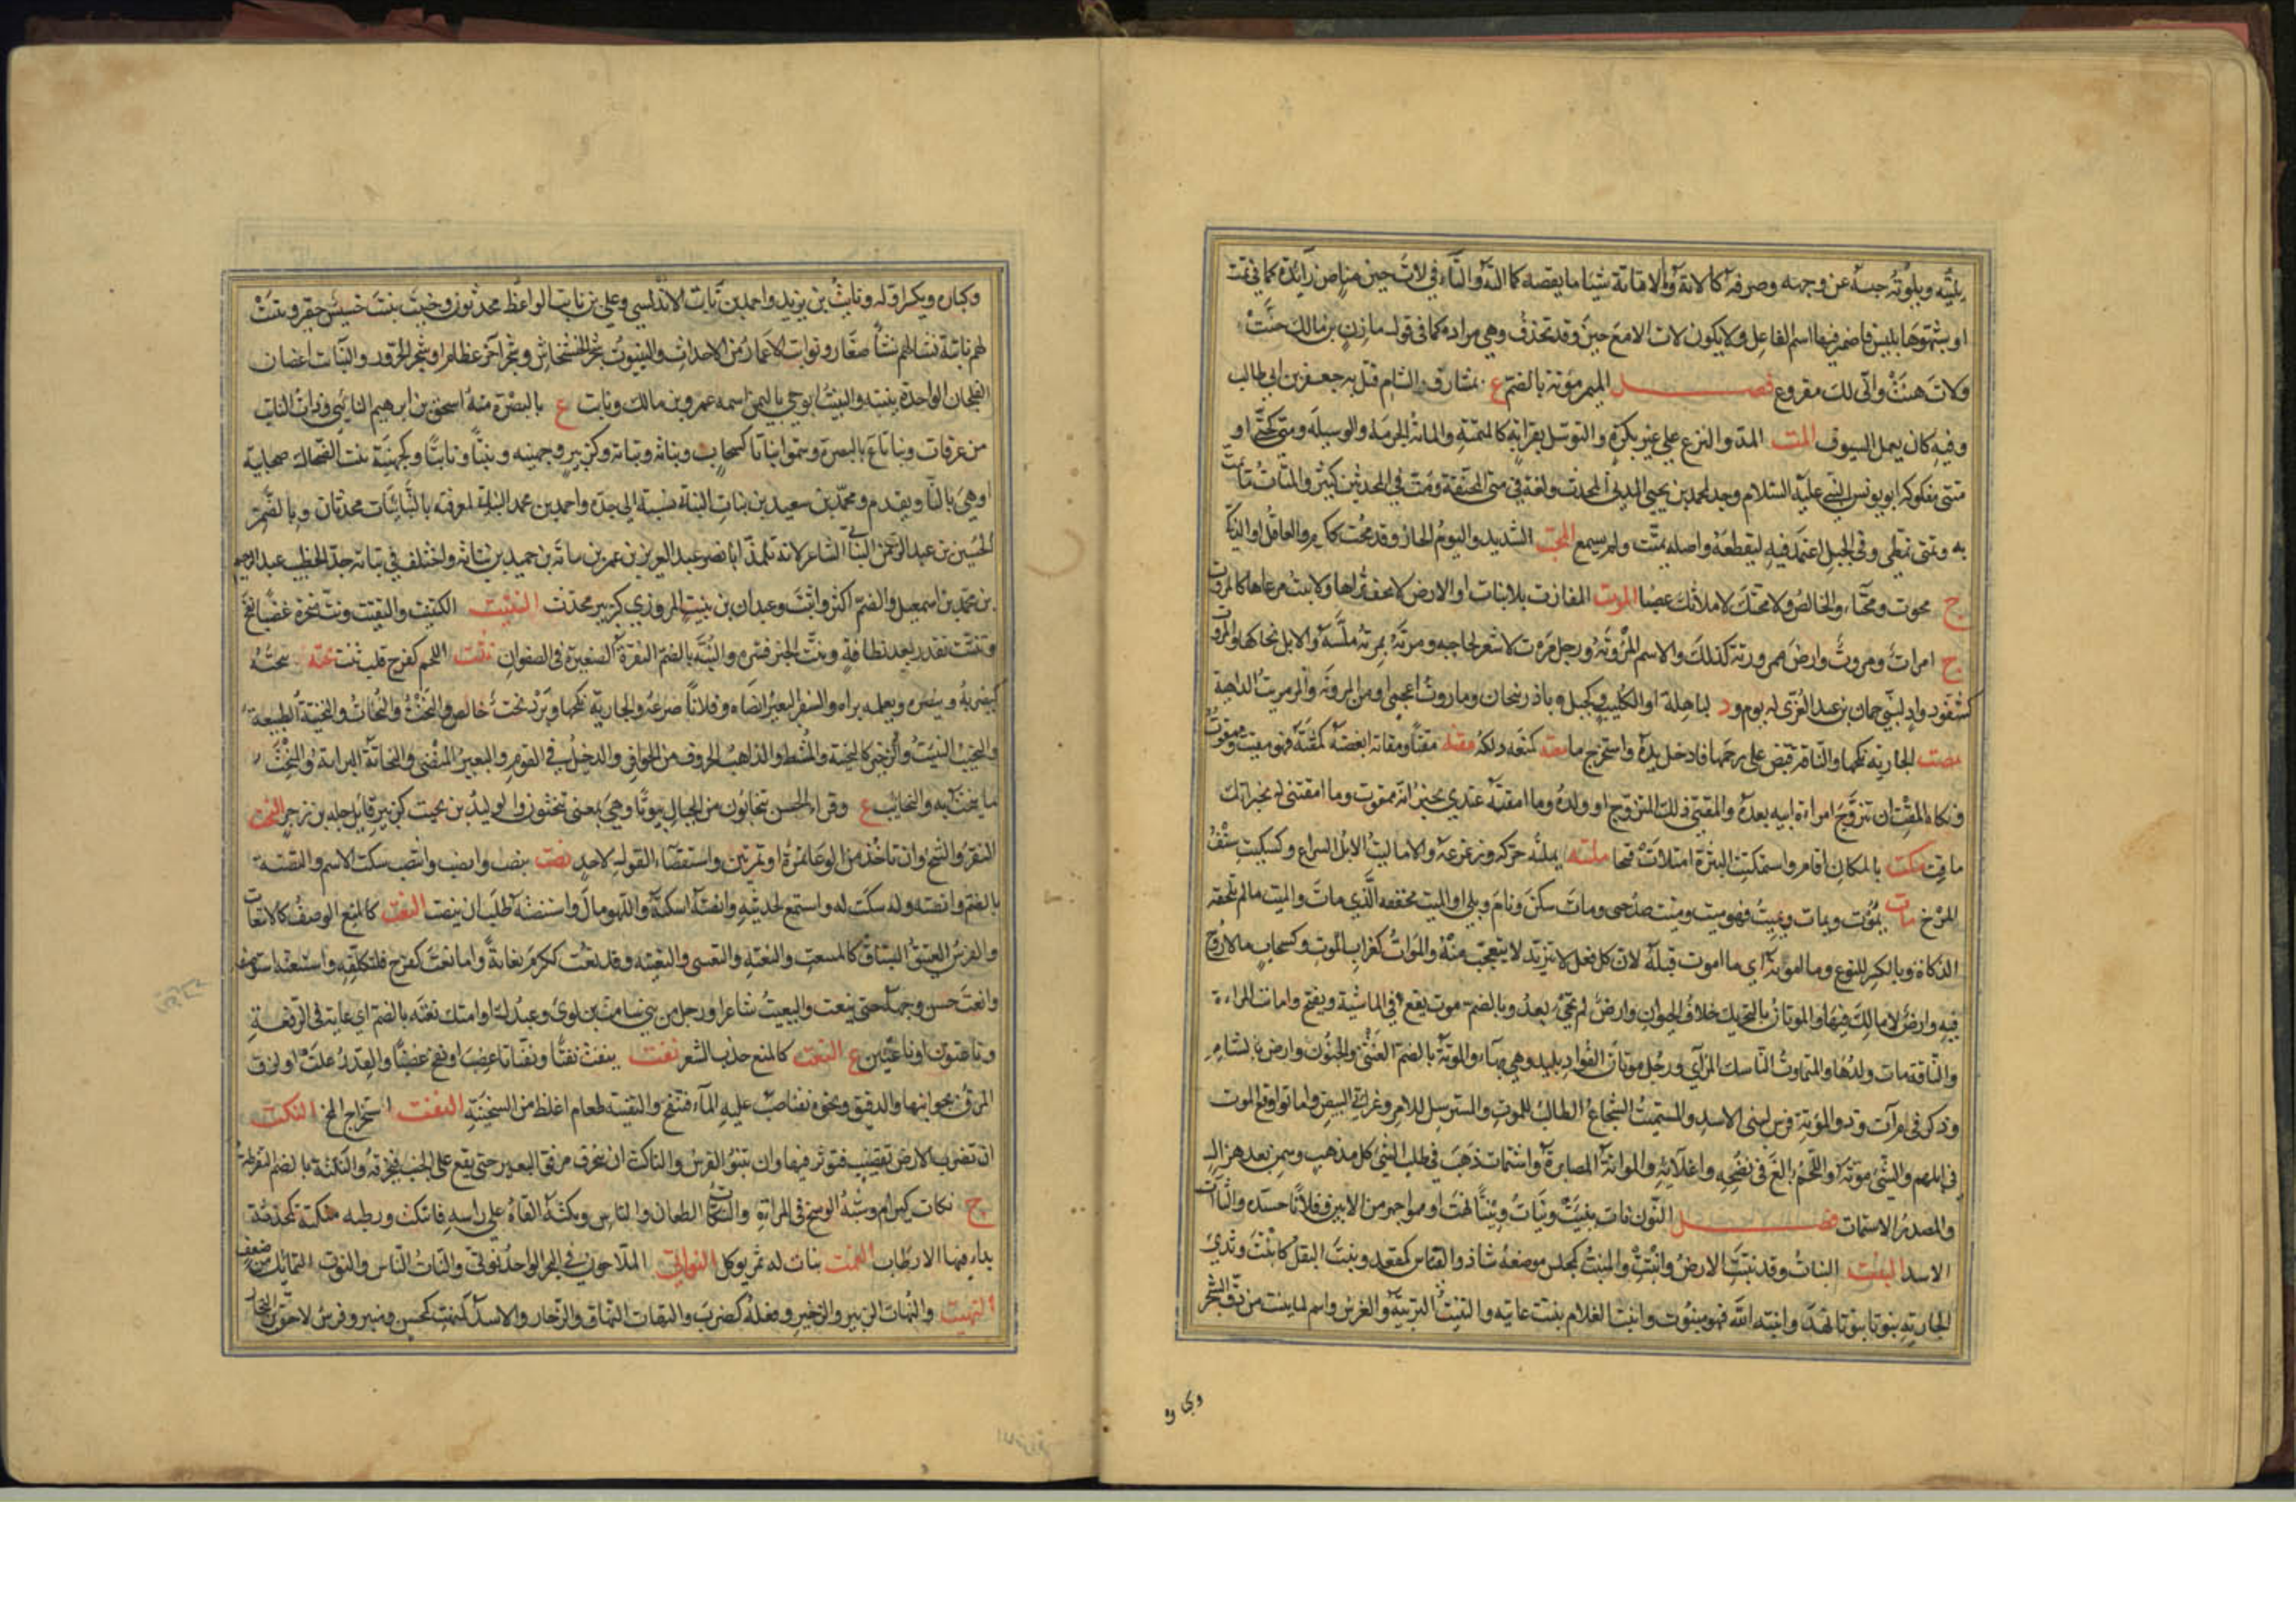 يليته ويلوته حبسه عن وجهه وصرفه كالاته والاقاتة شيئا ما ينقصه كما الته والتاء في لات حين مناص زائدة كما في ثمت
او شبهوها بليس فاضمر فيها اسم الفاعل ولا يكون لات الا مع حين وقد تحذف وهي مراده كما في قول مازن بن مالك حنت
ولات هنت واني لك مقروع فصل الميم موتة بالضم ع بمشارف الشام قتل به جعفر بن ابي طالب
وفيه كان يعمل السيوف المت المد والنزع على غير بكرة والتوسل بقرابة كالمتمتة والماتة الحرمة والوسيلة ومتى كحتى او
متتى مفكوكة ابو يونس النبي عليه السلام وجد لمحمد بن يحيى المديني المحدث ولغة في متى المخففة ومت في المحدثين كثير والمتات ما يمت
به وتمتى تمطى وفي الحبل اعتمد فيه ليقطعه واصله تمتت ولم يسمع المحت الشديد واليوم الحار وقد محت ككرم والعاقل او الذكي
ج محوت ومحتاء والخالص ولامحتنك لاملانك غضبا المرت المفازة بلا نبات او الارض لا يجف ثراها ولا ينبت مرعاها كالمروت
ج امرات ومروت وارض ممروتة كذلك والاسم المروتة ورجل مرت لا شعر لحاجبه ومرته يمرته ملسه والابل نحاها والمروت
كسفود واد لبني حمان بن عبد العزى له يوم ود لباهلة او لكليب وكجبل باذربيجان وماروت اعجمي او من المروتة والمرمريت الداهية
مصت الجارية نكحها والناقة قبض على رحمها فادخل يده واستخرج ماءه معته كمنعه دلكه مقته مقتا ومقاتة ابغضه كمقته فهو مقيت وممقوت
ونكاح المقت ان تتزوج امراة ابيه بعده والمقتي ذلك المتزوج او ولده وما امقته عندي يخبر انه ممقوت وما امقتني له يخبر انك
ماقت مكت بالمكان اقام واستمكتت البثرة امتلات قيحا ملته يملته حركه وزعزعه والاماليت الابل السراع وكسكيت سنف
المرخ مات يموت ويمات ويميت فهو ميت وميت ضد حي ومات سكن ونام وبلي او الميت مخففة الذي مات والميت ما لم تلحقه
الذكاة وبالكسر للنوع وما اموته اي ما اموت قلبه لان كل فعل لا يتزيد لا يتعجب منه والموات كغراب الموت وكسحاب ما لا روح
فيه وارض لا مالك فيها والموتان بالتحريك خلاف الحيوان وارض لم تحي بعد وبالضم موت يقع في الماشية ويفتح واماتت المراءة
والناقة مات ولدها والمتماوت الناسك المرائي ورجل موتان الفؤاد بليد وهي بهاء والموتة بالضم الغشي والجنون وارض بالشام
وذكر في مرات وذو الموتة فرس لبني الاسد والمستميت الشجاع الطالب للموت والمسترسل للامر وغرقئ البيض واماتوا وقع الموت
في ابلهم والشئ موته واللحم بالغ في نضجه واغلائه والمواتة المصابرة واستمات ذهب في طلب الشئ كل مذهب وسمن بعد هزال
والمصدر الاستمات فصل النون نات ينيت ونيات ونيتا نهت او هو اجهر من الانين وفلانا حسده والنات
الاسد النبت النبات وقد نبتت الارض وانبتت والمنبت كمجلس موضعه شاذ والقياس كمقعد ونبت البقل كانبت وثدي
الجارية نبوتا نهد وانبته الله فهو منبوت وانبت الغلام نبتت عانته والتنبيت التربية والغرس واسم لما ينبت من دق الشجر
وكباره
وكباره ويكسر اوله ونابت بن يزيد واحمد بن نابت الاندلسي وعلي بن نابت الواعظ محدثون وخبيت نبيت خسيس حقير ونبتت
لهم نابتة نشا لهم نشا صغار ونوابت الاغمار من الاحداث والينبوت شجر الخشخاش وشجر اخر عظام او شجر الخروب والنبات اغصان
الفلجان الواحدة نبيتة والنبيت ابو حي باليمن اسمه عمرو بن مالك ونابت ع بالبصرة منه اسحق بن ابراهيم النابتي وذات النابت
من عرفات ونباتا ع بالبصرة وسموا نباتا كسحاب ونباتة ونباتة وكزبير وجهينة ونبتا ونابتا وكجهينة بنت الضحاك صحابية
او هي بالثاء ويقدم ومحمد بن سعيد بن نبات النباتي نسبة الى جده واحمد بن محمد النباتي لمعرفته بالنباتات محدثان وبالضم
الحسين بن عبد الرحمن النباتي الشاعر لانه تلميذ ابا نصر عبد العزيز بن عمر بن نباتة بن حميد بن نباتة واختلف في نباتة جد الخطيب عبد الرحيم
بن محمد بن اسمعيل والضم اكثر واثبت وعبدان بن نبيت المروزي كزبير محدث النتيت الكتيت والنفيت ونت منخره غضبا نفخ
وتنتت تقذر بعد نظافة ونت الخبر فشره والنتة بالضم النقرة الصغيرة في الصفوان نثت اللحم كفرح قلب ثنت نحته ينحته
كيضربه وينصره ويعلمه براه والسفر البعير انضاه وفلانا صرعه والجارية نكحها وبرد نحت خالص والنحت والنحات والنحيتة الطبيعة
والنحيب النحيت والزحير كالنحيتة والمشط والذاهب الحروف من الحوافر والدخيل في القوم والبعير المنضى والنحاتة البراية والمنحت
ما ينحت به والنحايت ع وقراءة الحسن تنحاتون من الجبال بيوتا وهي بمعنى تنحتون والوليد بن نحيت كزبير قاتل جبلة بن زحر النخت
النقر والنتخ وان تاخذ من الوعاء تمرة او تمرتين واستقصاء القول لاحد نصت ينصت وانصت وانتصت سكت الاسم والنصتة
بالضم وانصته وله سكت له واستمع لحديثه وانصته اسكته واللهو مال واستنصته طلب ان ينصت النعت كالمنع الوصف كالانتعات
والفرس العتيق السباق كالمنتعت والنعتة والنعيت والنعيتة وقد نعت ككرم نعاتة واما نعت كفرح فلتكلفه واستنعته استوصفه
وانعت حسن وجهه حتى ينعت والنعيت شاعر ورجل من بني سامة بن لوي وعبدك او امتك نعتة بالضم اي غاية في الرفعة
وناعتون او ناعتين ع النغت كالمنع جذب الشعر نفت ينفت نفتا ونفتانا غضب او نفخ غضبا والقدر غلت او لزق
المرق بجوانبها والدقيق ونحوه نفتا صب عليه الماء فتنفخ والنفيتة طعام اغلظ من السخينة النقت استخراج المخ النكت
ان تضرب الارض بقضيب فتؤثر فيها وان ينبو الفرس والناكت ان ينحرف مرفق البعير حتى يقع على الجنب فيخرقه والنكتة بالضم النقطة
ج نكات كبرام وشبه الوسخ في المراة والنكات الطعان في الناس ونكته القاه على راسه فانتكت ورطبه منكتة كمحدثة
بدا فيها الارطاب النمت نبات له ثمر يؤكل النواتي الملاحون في البحر الواحد نوتي والنات الناس والنوت التمايل من ضعف
النهيت والنهات الزئير والزحير وفعله كضرب والنهات النهاق والزحار والاسد كالمنهت كمحسن ومنبر وفرس لاحق بن النجار